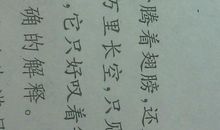 腾着翅膀,还
万里长空,只见
它只好叹着
确的解释。